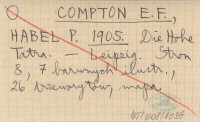 COMPTON E. F.,
HABEL P. 1905. Die Hohe
Tatra. — Leipzig Stron
8, 7 barwnych ilustr.,
26 drzeworytów, mapa.